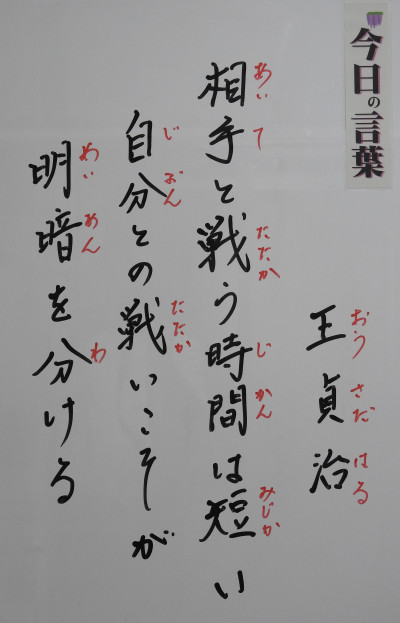 今日の言葉
王貞治
おう さだ はる
相手と戦う時間は短い
あい て たたか じ かん みじか
自分との戦いこそが
じ ぶん たたか
明暗を分ける
めい あん わ